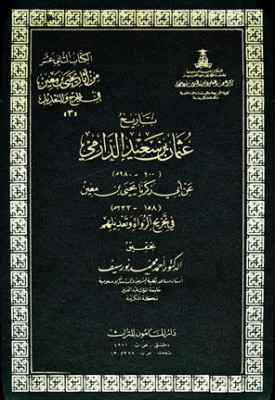 الكتاب الثاني عشر
من آثار يحيى بن معين
في الجرح والتعديل
(٣)
تاريخ
عثمان بن سعيد الدارمي
(٢٠٠ - ٢٨٠هـ)
عن أبي زكريا يحيى بن معين
(١٥٨ - ٢٣٣هـ)
في تجريح الرواة وتعديلهم
تحقيق
الدكتور أحمد محمد نور سيف
مكة المكرمة
دار المأمون للتراث